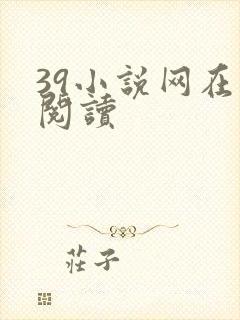 39小说网在
閱讀
莊子